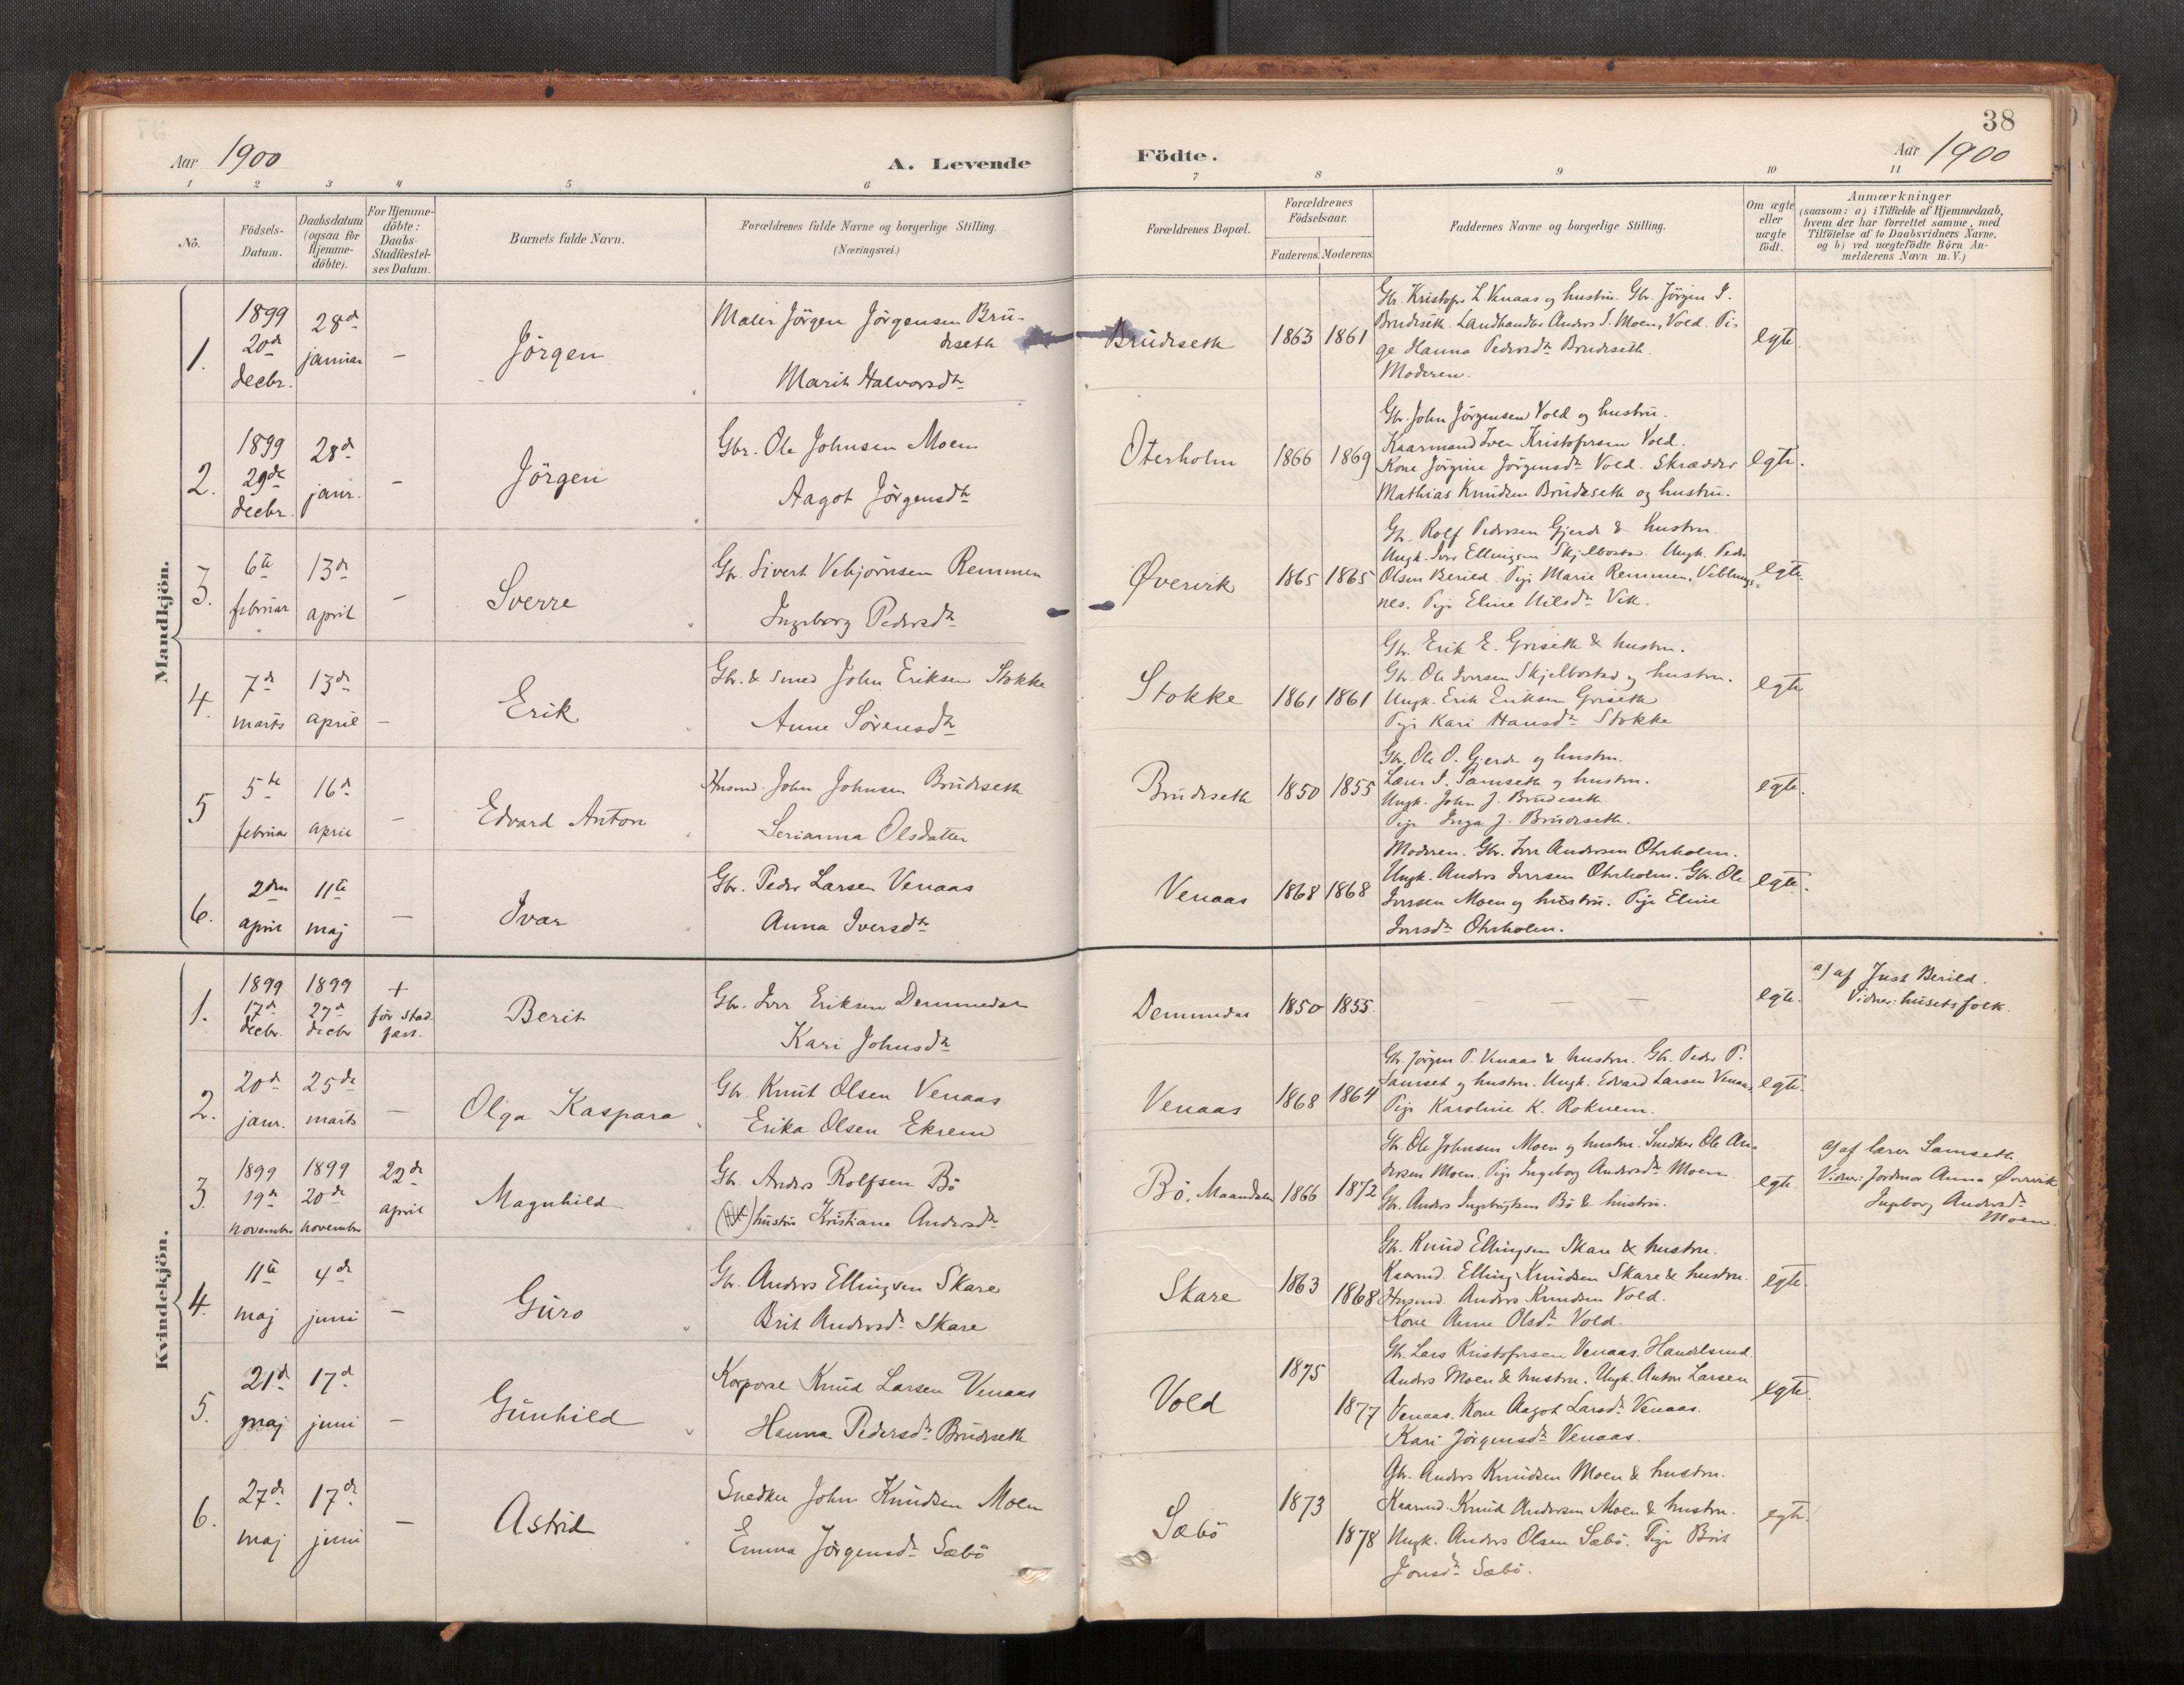 38
Aar 1900
A. Levende
Födte.
Aar 1900
1 2 3 4 5 6
7 8 9 10 11
Nô.
Födsels-Datum.
Daabsdatum (ogsaa for Hjemme-döbte).
For Hjemme-döbte: Daabs-Stadfæstel-ses Datum.
Barnets fulde Navn.
Forældrenes fulde Navne og borgerlige Stilling.
(Næringsvei.)
Forældrenes Bopæl.
Forældrenes Födselsaar.
Faderens. Moderens.
Faddernes Navne og borgerlige Stilling.
Om ægte eller uægte födt.
Anmærkninger
(saasom: a) i Tilfælde af Hjemmedaab,
hvem der har forrettet samme, med
Tilföielse af to Daabsvidners Navne,
og b) ved uægtefödte Börn An-
melderens Navn m. V.)
Mandkjön.
1.
1899
20de
decbr.
28de
januar
–
Jörgen
Maler Jörgen Jörgensen Brü-
deseth
Marit Halvorsdtr
Brüdeseth
1863 1861
Gbr. Kristofer L. Venaas og hustru. Gbr. Jörgen J.
Brudeseth. Landhandler Anders I. Moen, Vold. Pi-
ge Hanna Pedersdtr Brudeseth.
Moderen.
egte.
2.
1899
29de
decbr.
28de
janr.
–
Jörgen
Gbr. Ole Johnsen Moen
Aagot Jörgensdtr
Oterholm
1866 1869
Gbr. John Jörgensen Vold og hustru.
Kaarmand Iver Kristofersen Vold.
Kone Jörgine Jörgensdtr Vold. Skrædder
Mathias Knudsen Brüdeseth og hustru.
egte.
3.
6te
februar
13de
april
–
Sverre
Gbr. Sivert Vebjörnsen Remmen
Ingeborg Pedersdtr
Øvervik
1865 1865
Gbr. Rolf Pedersen Gjerde & hustru.
Ungk. Iver Ellingsen Skjelbostad. Ungk. Peder
Olsen Berild. Pige Marie Remmen, Veblungs-
nes. Pige Eline Nilsdtr Vik.
egte.
4.
7de
marts
13de
april
–
Erik
Gbr. & smed John Eriksen Stokke
Anne Sörensdtr
Stokke
1861 1861
Gbr. Erik E. Griseth & hustru.
Gbr. Ole Iversen Skjelbostad og hustru.
Ungk. Erik Eriksen Griseth
Pige Kari Hansdtr Stokke
egte
5
5te
februar
16de
april
–
Edvard Anton
Husmd. John Johnsen Brüdeseth
Serianna Olsdatter
Brüdeseth
1850 1855
Gbr. Ole O. Gjerde og hustru.
Lærer I. Samseth og hustru.
Ungk. John J. Brüdeseth.
Pige Inga J. Brüdeseth.
egte.
6.
2den
april
11te
maj
–
Ivar
Gbr. Peder Larsen Venaas
Anna Iversdtr
Venaas
1868 1868
Moderen. Gbr. Iver Andersen Ohrholm.
Ungk. Anders Iversen Ohrholm. Gbr. Ole
Iversen Moen og hüstrü. Pige Eline
Iversdtr Ohrholm.
egte.
Kvindekjön.
1.
1899
17de
decbr.
1899
27de
decbr
+
för stad-
fæst.
Berit
Gbr. Iver Eriksen Demmedal
Kari Johnsdtr
Demmedal
1850 1855.
– – –
egte.
a) af Just Berild.
Vidner: hüsetsfolk.
2.
20de
janr.
25de
marts
–
Olga Kaspara
Gbr. Knut Olsen Venaas
Erika Olsen Ekrem
Venaas
1868 1864
Gbr. Jörgen P. Venaas & hustru. Gbr. Peder P.
Samset og hustru. Ungk. Edvard Larsen Venaas.
Pige Karoline K. Roknem.
egte.
3.
1899
19de
november
1899
20de
november
22de
april
Magnhild
Gbr. Anders Rolfsen Bö
hustru Kristiane Andersdtr
Bö, Maandalen
1866 1872
Gbr. Ole Johnsen Moen og hustru. Snedker Ole An-
dersen Moen. Pige Ingeborg Andersdtr Moen.
Gbr. Anders Ingebrigtsen Bö & hustru.
egte.
a) af lærer Samseth
Vidner: Jordmor Anna Øvervik
Ingeborg Andersdtr
Moen.
4.
11te
maj
4de
juni
–
Güro
Gbr. Anders Ellingsen Skare
Brit Andersdtr Skare
Skare
1863 1868
Gbr. Knüd Ellingsen Skare & hustru.
Kaarmd. Elling Knüdsen Skare & hustru.
Husmd. Anders Knudsen Vold.
Kone Anne Olsdtr Vold.
egte.
5.
21de
maj
17de
juni
–
Günhild
Korporal Knüd Larsen Venaas
Hanna Pedersdtr Brüdeseth
Vold
1875 1877
Gbr. Lars Kristofersen Venaas. Handelsmd.
Anders Moen & hustru. Ungk. Anton Larsen
Venaas. Kone Aagot Larsdtr Venaas.
Kari Jörgensdtr Venaas.
egte.
6.
27de
maj
17de
juni
–
Astrid
Snedker John Knüdsen Moen
Emma Jörgensdtr Sæbö
Sæbö
1873 1878
Gbr. Anders Knüdsen Moen & hustru.
Kaarmd. Knüd Andersen Moen & hustru.
Ungk. Anders Olsen Sæbö. Pige Brit
Jonsdtr Sæbö.
egte.